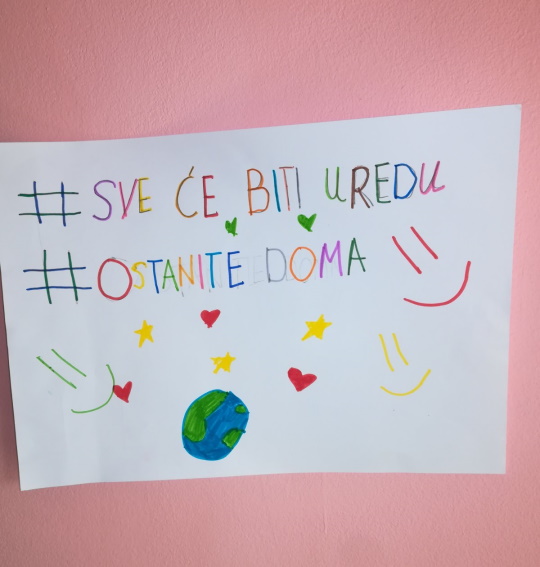 #SVE ĆE BITI UREDU
#OSTANITE DOMA